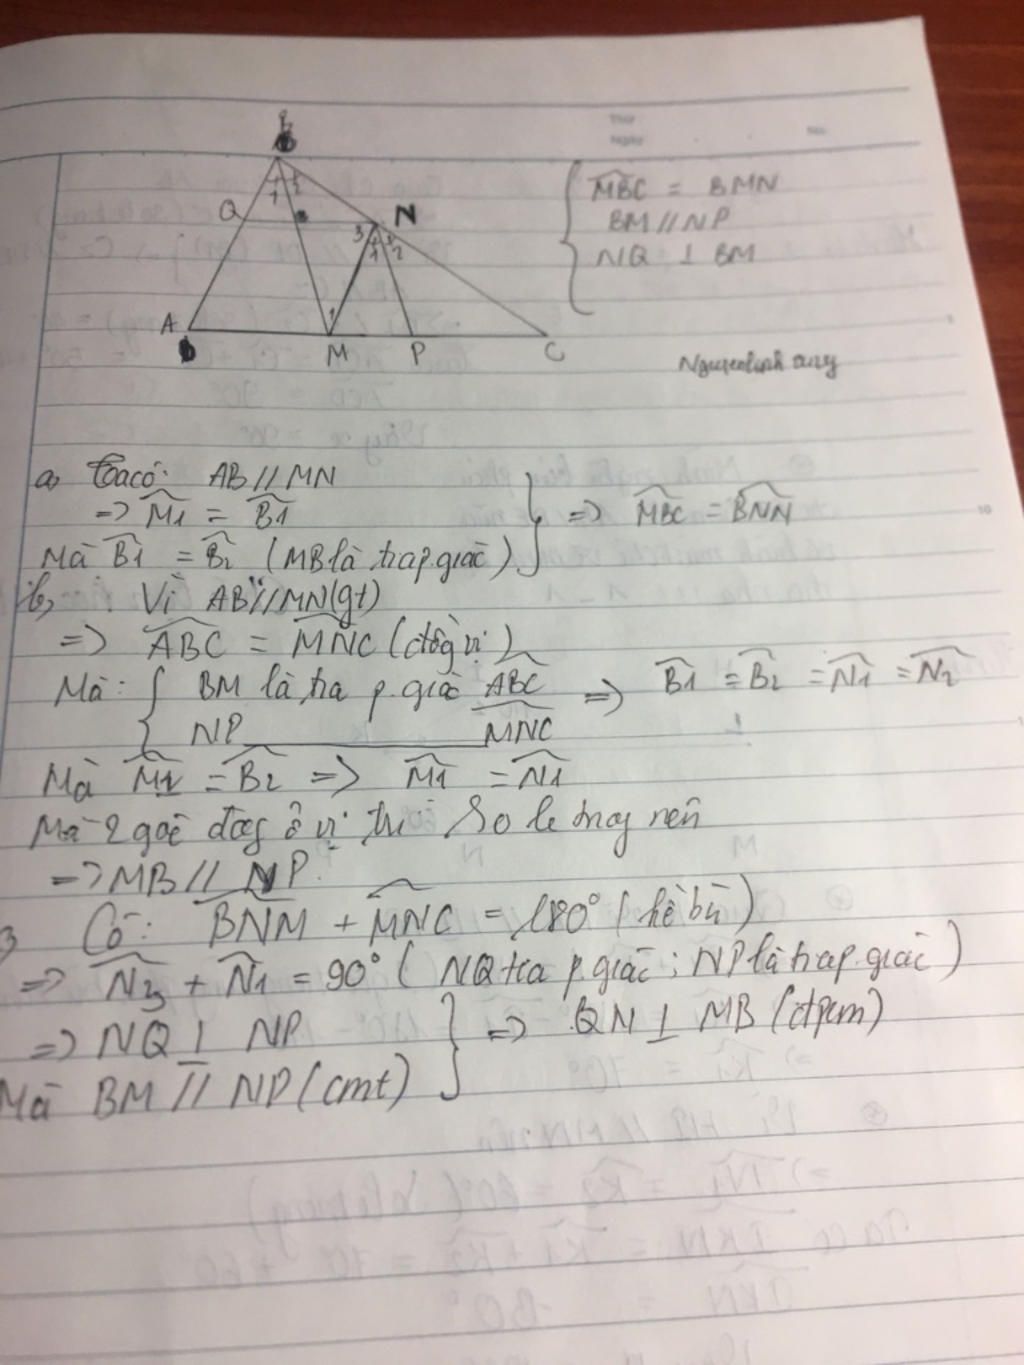 B
Q
N
1
2
3
1
2
1
A
M
P
C
MBC = BMN
BM // NP
NQ ⊥ BM
a, Ta có: AB // MN
=> M1 = B1
Mà B1 = B2 (MB là tia p.giác) } => MBC = BNN
b, Vì AB // MN (gt)
=> ABC = MNC (đồg vị)
Mà: { BM là tia p.giác ABC => B1 = B2 = N1 = N2
NP ______ MNC
Mà M1 = B2 => M1 = N1
Mà 2 góc đag ở vị trí So le trog nên
=> MB // NP.
Có: BNM + MNC = 180° (kề bù)
=> N3 + N1 = 90° (NQ tia p.giác; NP là tia p.giác)
=> NQ ⊥ NP } => QN ⊥ MB (đpcm)
Mà BM // NP (cmt)